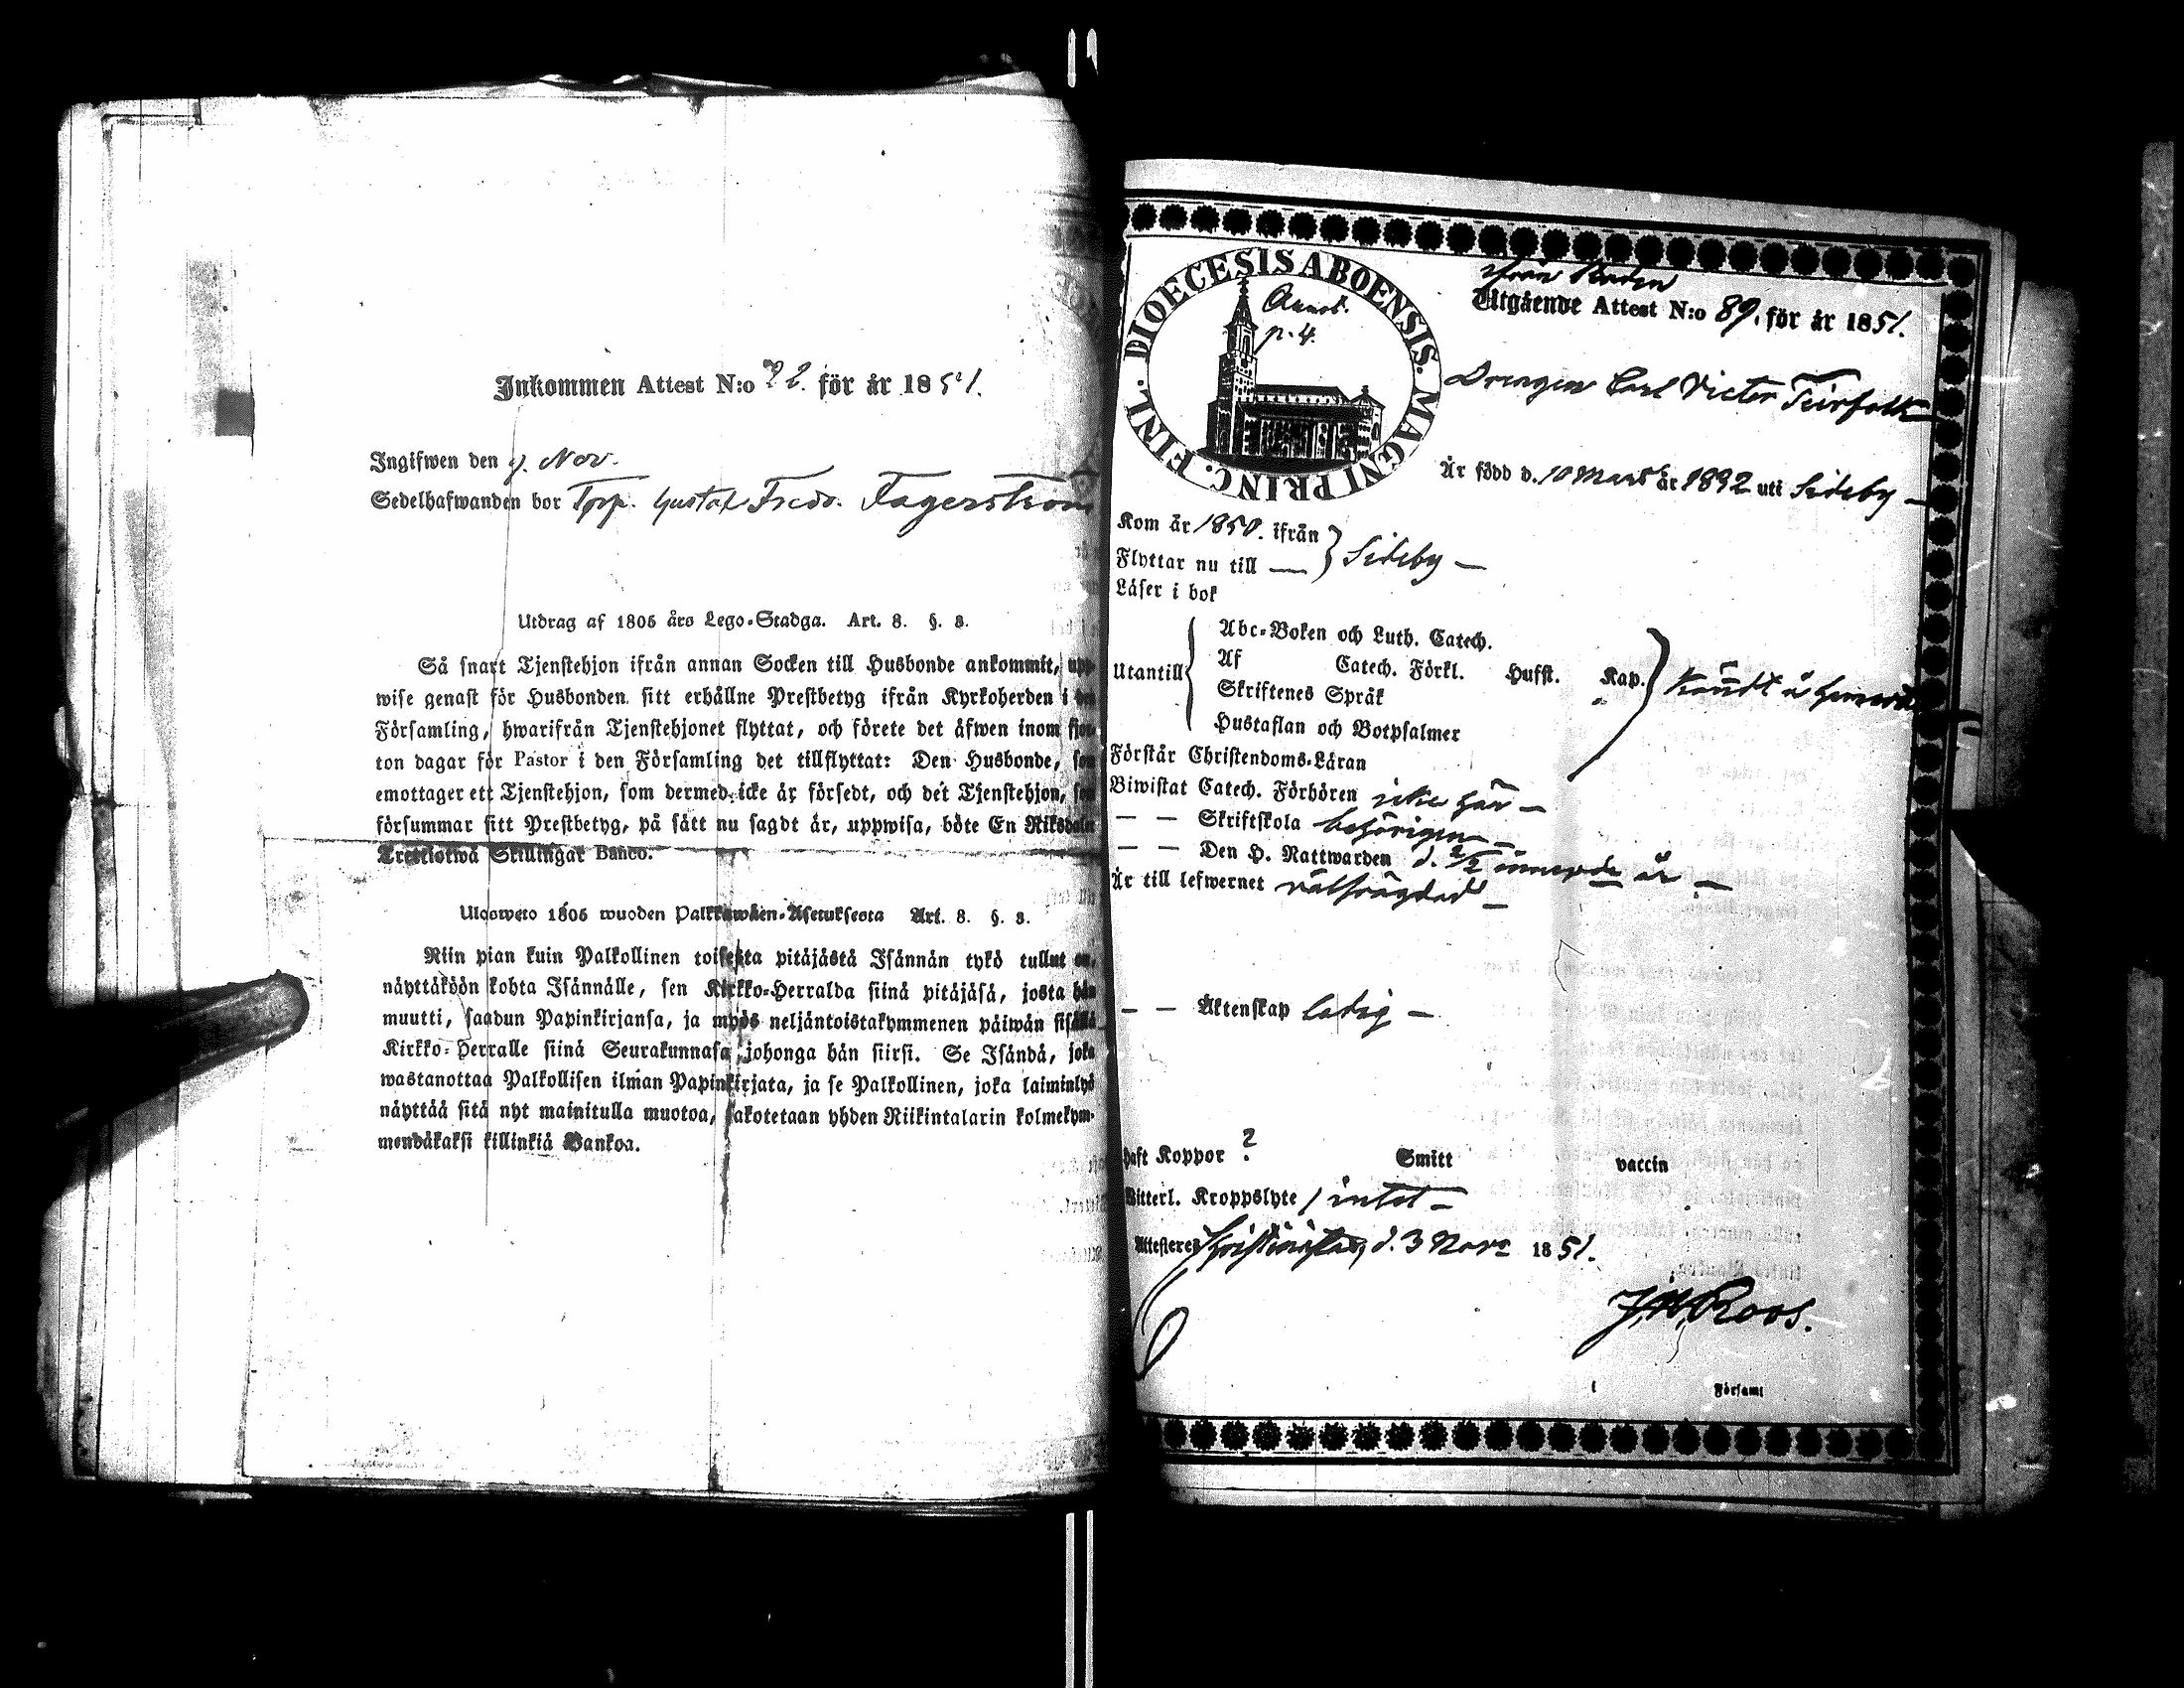 Inkommen Attest N:o 22. för år 1851.
Ingifwen den 9. Nov.
Sedelhafwanden bor Torp. Gustaf Fredr. Fagerström
Utdrag af 1805 års Lego-Stadga. Art. 8. §. 8.
Så snart Tjenstehjon ifrån annan Socken till Husbonde ankommit, upp-
wise genast för Husbonden sitt erhållne Prestbetyg ifrån Kyrkoherden i den
Församling, hwarifrån Tjenstehjonet flyttat, och förete det äfwen inom fjor-
ton dagar för Pastor i den Församling det tillflyttat: Den Husbonde, som
emottager ett Tjenstehjon, som dermed icke är försedt, och det Tjenstehjon, som
försummar sitt Prestbetyg, på sätt nu sagdt är, uppwisa, böte En Riksdaler
Trettiotwå Skillingar Banco.
Ulosweto 1805 wuoden Palkkawäen-Asetuksesta Art. 8. §. 8.
Niin pian kuin Palkollinen toisesta pitäjästä Isännän tykö tullut on,
näyttäköön kohta Isännälle, sen Kirkko-Herralda siinä pitäjäsä, josta hän
muutti, saadun Papinkirjansa, ja myös neljäntoistakymmenen päiwän sisällä
Kirkko-Herralle siinä Seurakunnasa johonga hän siirsi. Se Isändä, joka
wastanottaa Palkollisen ilman Papinkirjata, ja se Palkollinen, joka laiminlyö
näyttää sitä nyt mainitulla muotoa, sakotetaan yhden Riikintalarin kolmekym-
mendäkaksi killinkiä Bankoa.
DIOECESIS ABOENSIS. MAGNI PRINC. FINL.
Annot.
p. 4.
Utgående Attest N:o 89. för år 1851.
Drengen Carl Victor Teirfolk
Är född d. 10 Mars år 1832 uti Sideby —
Kom år 1850. ifrån
Flyttar nu till — } Sideby —
Läser i bok
Utantill
Abc-Boken och Luth. Catech.
Af Catech. Förkl. Husst. Kap.
Skriftenes Språk
Hustaflan och Botpsalmer
Förstår Christendoms-Läran
Biwistat Catech. Förhören icke här —
— — Skriftskola behörigen —
— — Den H. Nattwarden d. 2/2 år —
Är till lefwernet välfrägdad —
— — Äktenskap ledig —
haft Koppor ? Smitt vaccin
Witterl. Kroppslyte / intet —
Attesteres Christinestad, d. 3 Nov. 1851.
J. W. Roos.
Församl